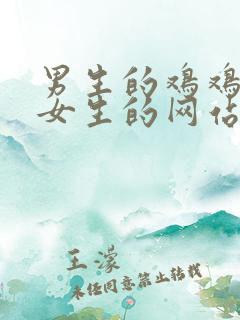 男生的鸡鸡
女生的网站
王濛
未经同意禁止转载